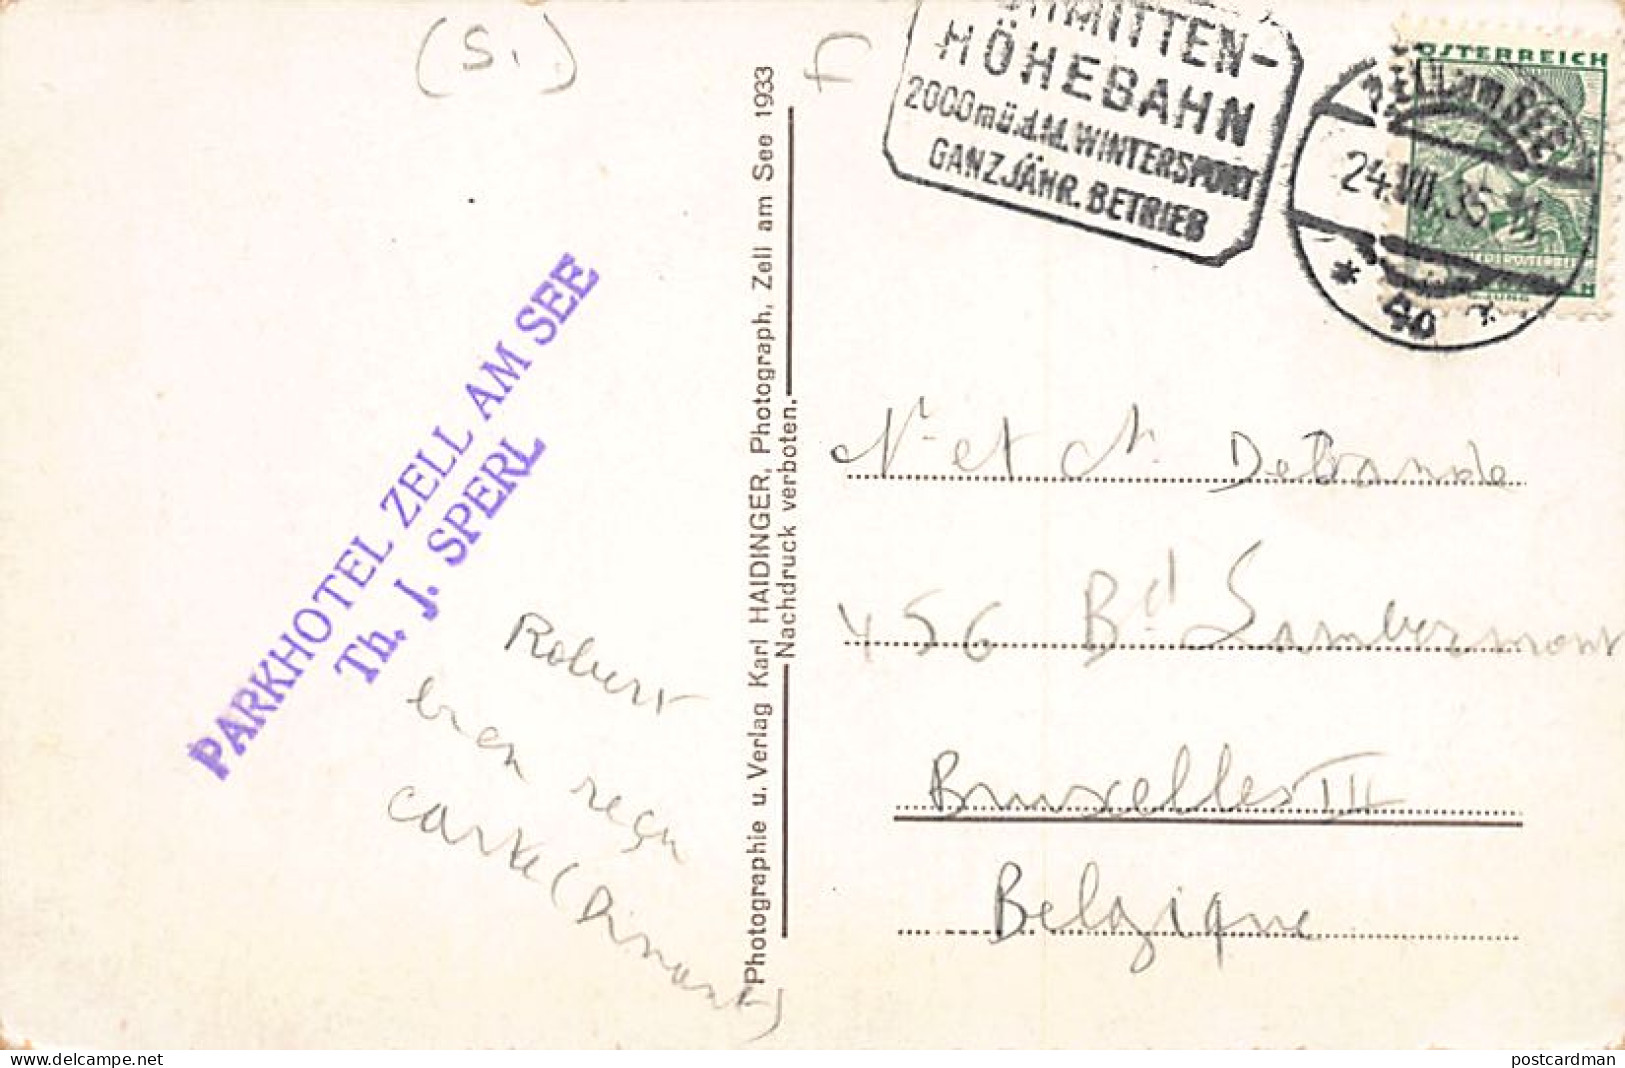 (S.)
MITTEN-
HÖHEBAHN
2000mü.d.M. WINTERSPORT
GANZJÄHR. BETRIEB
ÖSTERREICH
ZELL am SEE
24.VII.35
* 40 *
PARKHOTEL ZELL AM SEE
Th. J. SPERL
Photographie u. Verlag Karl HAIDINGER, Photograph, Zell am See 1933
Nachdruck verboten.
Robert
bien reçu
carte (Dinant)
et Delbrande
456 Bd Lambermont
Bruxelles III
Belgique
delcampe.net
postcardman